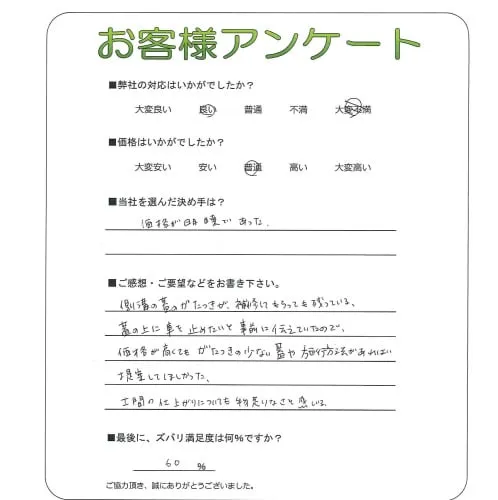 お客様アンケート
■弊社の対応はいかがでしたか?
大変良い 良い 普通 不満 大変不満
■価格はいかがでしたか?
大変安い 安い 普通 高い 大変高い
■当社を選んだ決め手は?
価格が明瞭であった。
■ご感想・ご要望などをお書き下さい。
側溝の蓋のがたつきが、補修してもらっても残っている。
蓋の上に車を止めたいと事前に伝えていたので、
価格が高くてもがたつきの少ない蓋や施行方法があれば
提案してほしかった。
土間の仕上がりについても物足りなさを感じる。
■最後に、ズバリ満足度は何%ですか?
60 %
ご協力頂き、誠にありがとうございました。